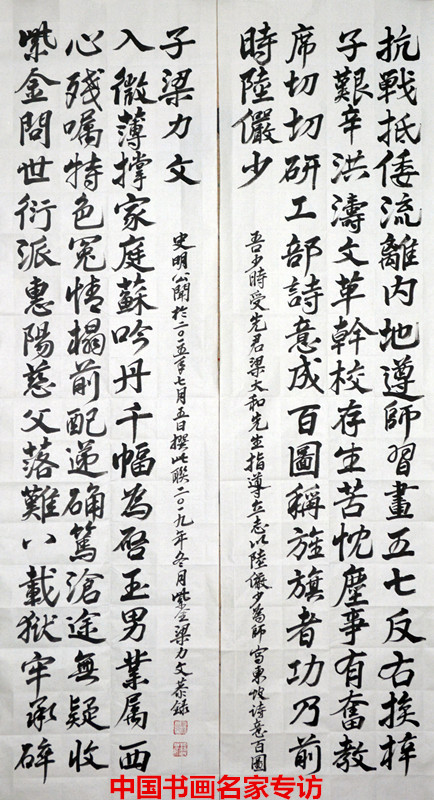 抗戰抵倭流離内地遵師習畫五七反右挨梓
子艱辛洪濤文革幹校存生苦忱塵事有奮教
席切切研工部詩意成百圖稱旌旗者功乃前
時陸儼少
吾少時受先君梁大和先生指導立志以陸儼少為師寫東坡詩意百圖
紫金問世衍派惠陽慈父落難八載獄牢承碎
心殘嘱特色冤情榻前配遞確篤滄途無疑收
入微薄撑家庭蘇吟丹千幅為啓玉男業属西
子梁力文
史明公開於二〇一五年七月五日撰此聯二〇一九年冬月紫金梁力文恭録
中国书画名家专访